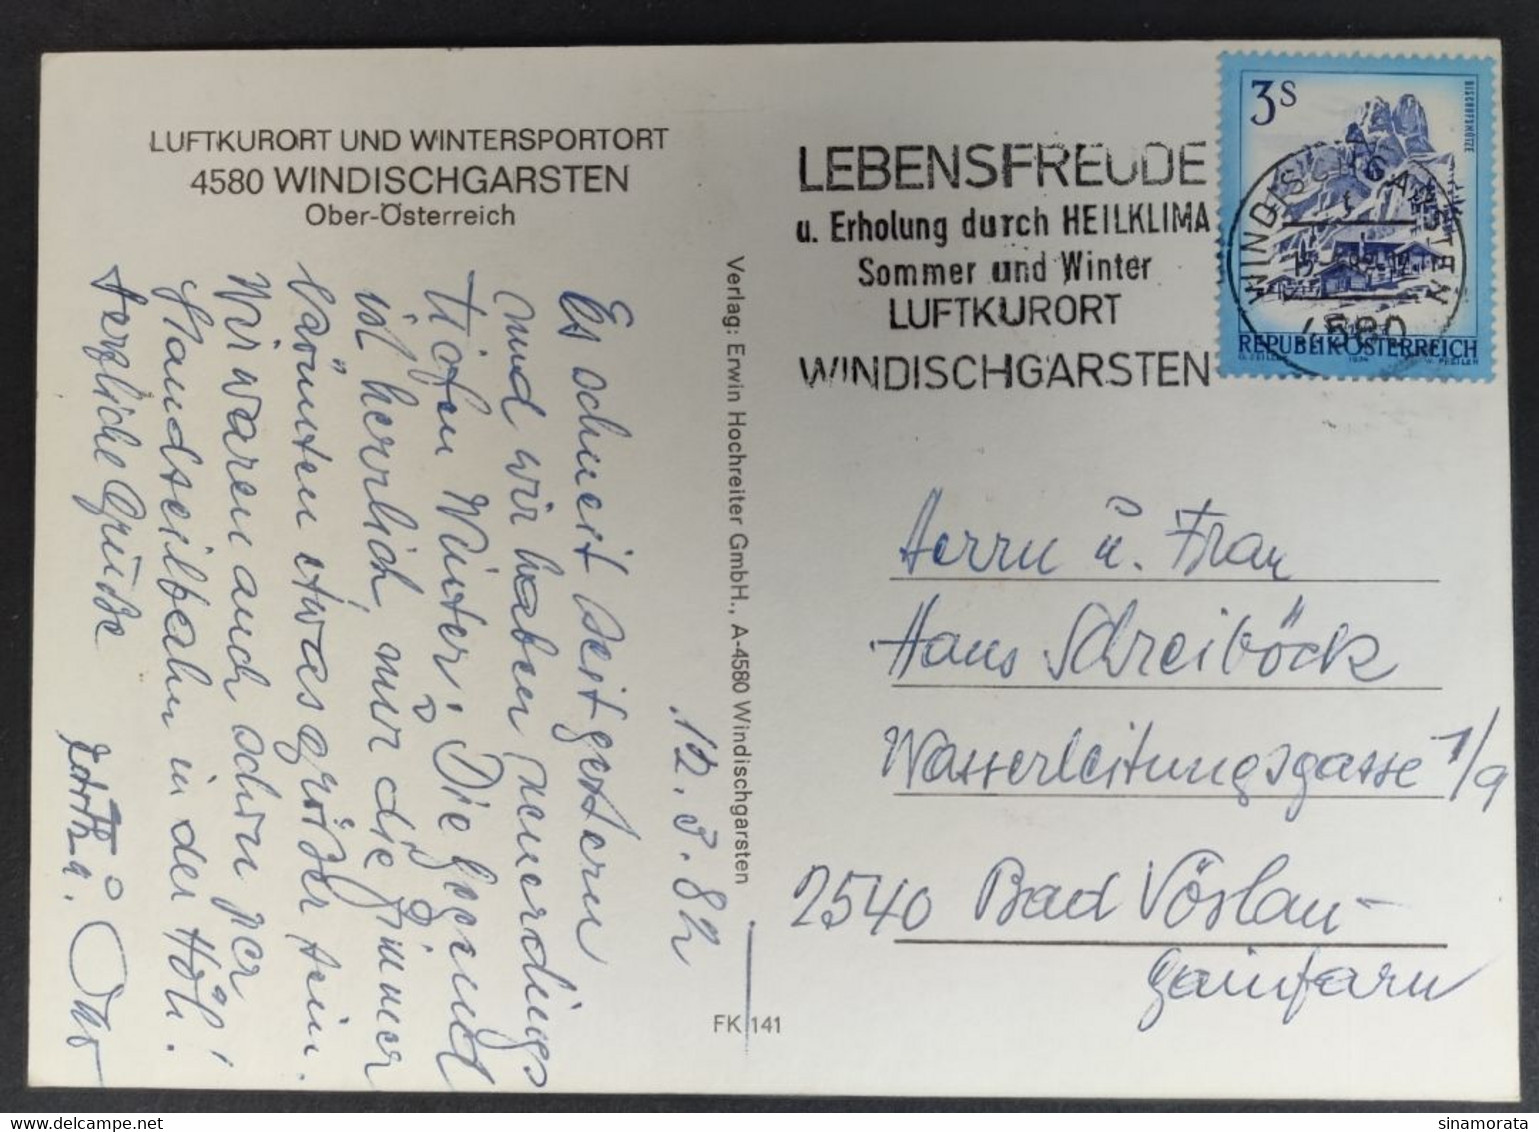 LUFTKURORT UND WINTERSPORTORT
4580 WINDISCHGARSTEN
Ober-Österreich
12.3.82
Es schneit seit gestern
und wir haben neuerdings
tiefen Winter. Die Gegend
ist herrlich, nur die Zimmer
könnten etwas größer sein.
Wir waren auch schon per
Standseilbahn in der Höh!
Herzliche Grüße
u. Otto
Verlag: Erwin Hochreiter GmbH., A-4580 Windischgarsten
FK 141
LEBENSFREUDE
u. Erholung durch HEILKLIMA
Sommer und Winter
LUFTKURORT
WINDISCHGARSTEN
3S
BISCHOFSMÜTZE
WINDISCHGARSTEN
4580
REPUBLIK ÖSTERREICH
1974
Herrn u. Frau
Hans Schreiböck
Wasserleitungsgasse 1/9
2540 Bad Vöslau-
Gainfarn
sinamorata